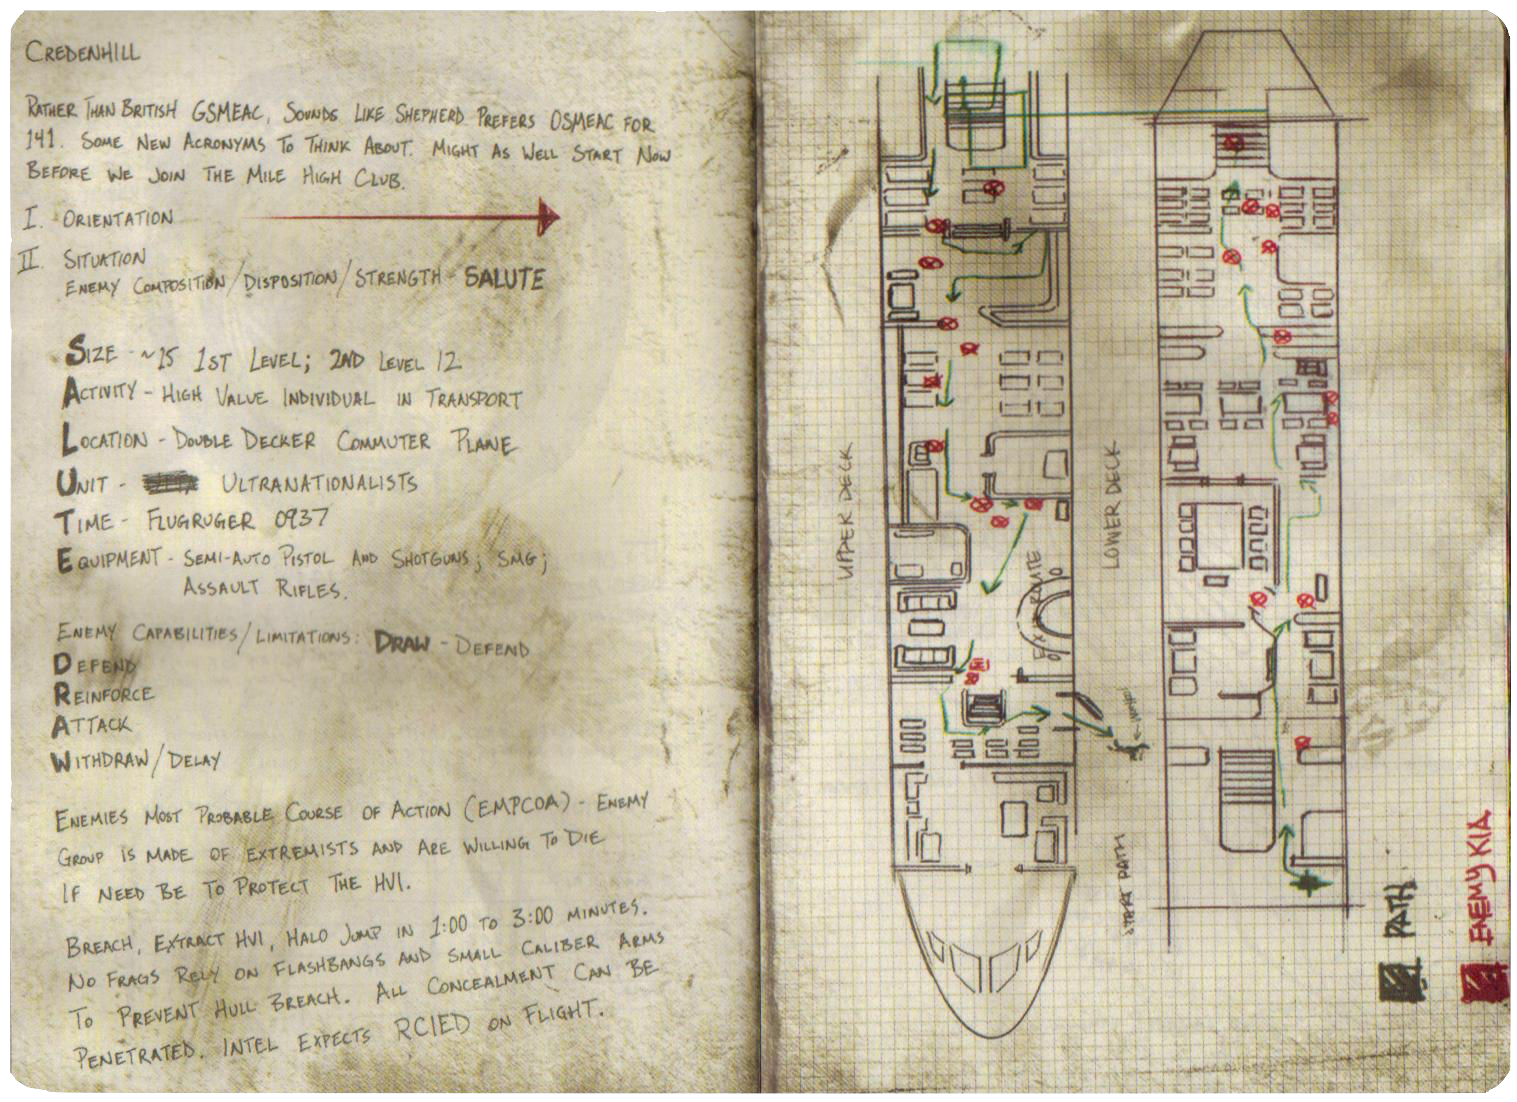 CREDENHILL
RATHER THAN BRITISH GSMEAC, SOUNDS LIKE SHEPHERD PREFERS OSMEAC FOR
141. SOME NEW ACRONYMS TO THINK ABOUT. MIGHT AS WELL START NOW
BEFORE WE JOIN THE MILE HIGH CLUB.
I. ORIENTATION
II. SITUATION
ENEMY COMPOSITION/DISPOSITION/STRENGTH - SALUTE
SIZE - ~15 1ST LEVEL; 2ND LEVEL 12
ACTIVITY - HIGH VALUE INDIVIDUAL IN TRANSPORT
LOCATION - DOUBLE DECKER COMMUTER PLANE
UNIT - ULTRANATIONALISTS
TIME - FLUGRUGER 0937
EQUIPMENT - SEMI-AUTO PISTOL AND SHOTGUNS; SMG;
ASSAULT RIFLES.
ENEMY CAPABILITIES/LIMITATIONS: DRAW - DEFEND
DEFEND
REINFORCE
ATTACK
WITHDRAW/DELAY
ENEMIES MOST PROBABLE COURSE OF ACTION (EMPCOA) - ENEMY
GROUP IS MADE OF EXTREMISTS AND ARE WILLING TO DIE
IF NEED BE TO PROTECT THE HVI.
BREACH, EXTRACT HVI, HALO JUMP IN 1:00 TO 3:00 MINUTES.
NO FRAGS RELY ON FLASHBANGS AND SMALL CALIBER ARMS
TO PREVENT HULL BREACH. ALL CONCEALMENT CAN BE
PENETRATED. INTEL EXPECTS RCIED ON FLIGHT.
UPPER DECK
EXIT ROUTE
LOWER DECK
START PATH
PATH
ENEMY KIA